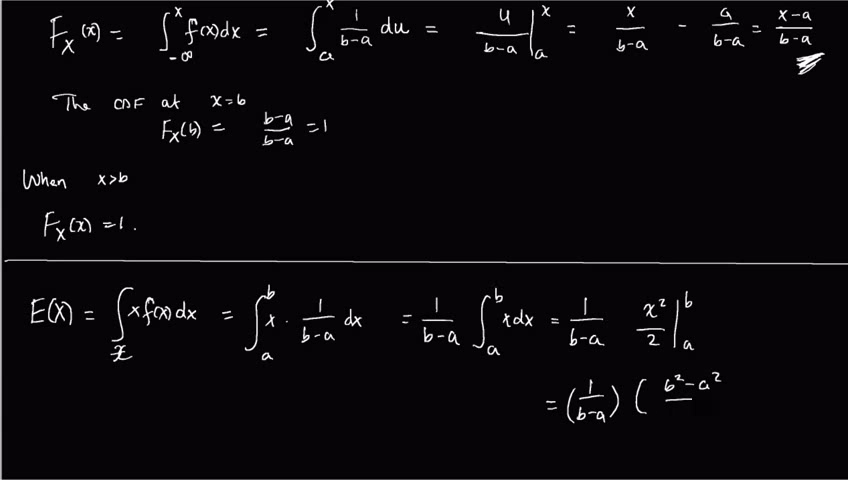 F_X(x) = ∫_{-∞}^{x} f(x)dx = ∫_a^x 1/(b-a) du = u/(b-a) |_a^x = x/(b-a) - a/(b-a) = (x-a)/(b-a)
The CDF at x=b
F_X(b) = (b-a)/(b-a) = 1
When x>b
F_X(x) = 1.
E(X) = ∫_x x f(x) dx = ∫_a^b x · 1/(b-a) dx = 1/(b-a) ∫_a^b x dx = 1/(b-a) x²/2 |_a^b
= (1/(b-a)) ( b²-a²